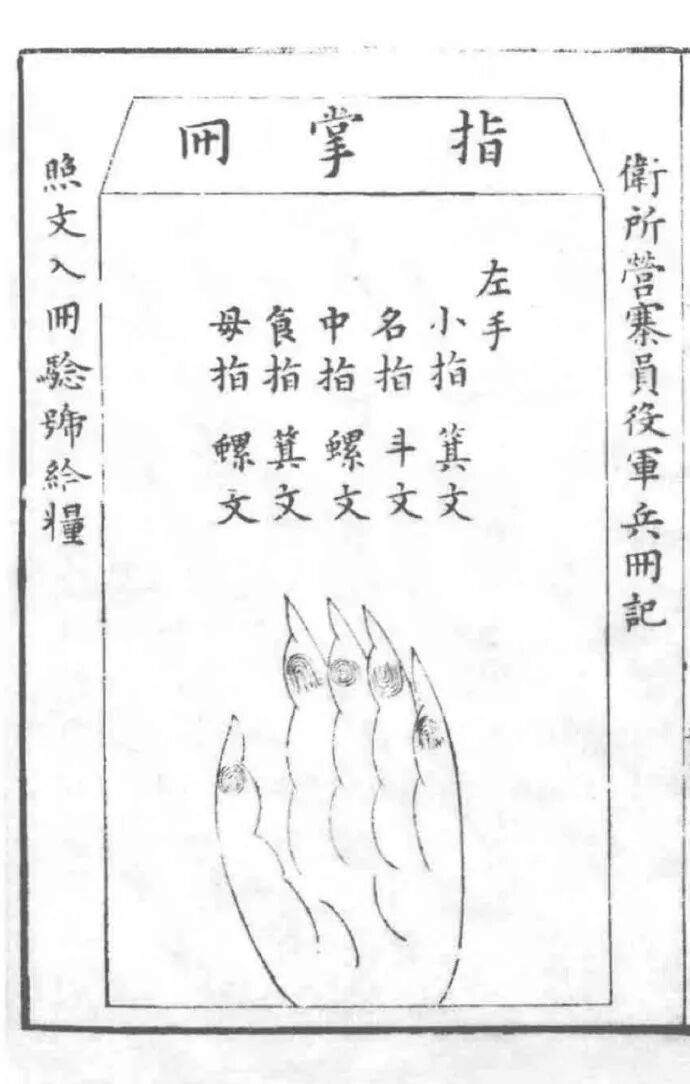 衛所營寨員役軍兵冊記
指掌冊
左手
小指 箕文
名指 斗文
中指 螺文
食指 箕文
母指 螺文
照文入冊驗號給糧